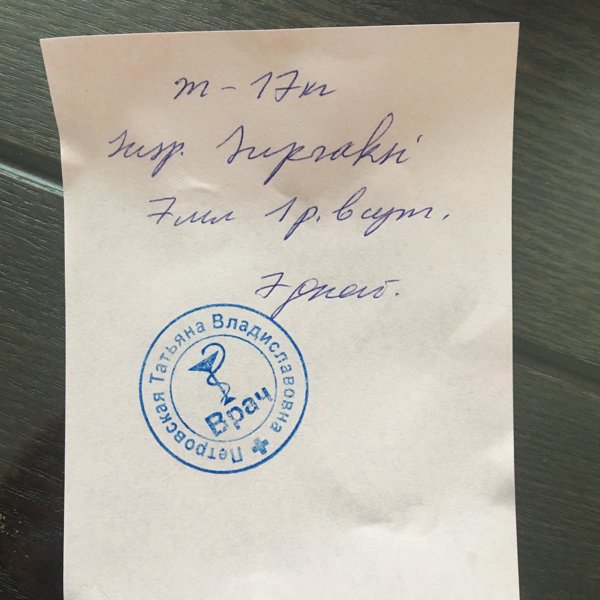 m - 17кг
Susp. Supraksi
7мл 1 р. в сут.
7 дней.
Петровская Татьяна Владиславовна
Врач